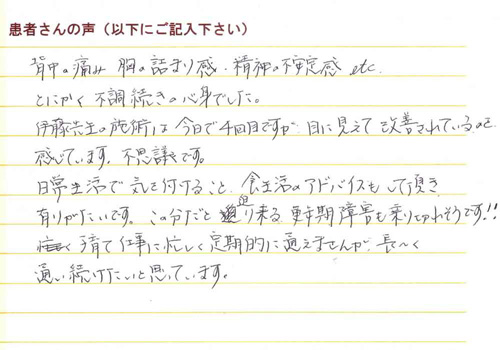 患者さんの声（以下にご記入下さい）
背中の痛み 胸の詰まり感、精神の不安定感 etc.
とにかく 不調続きの心身でした。
伊藤先生の施術は 今日で4回目ですが 目に見えて 改善されているのを
感じています。不思議です。
日常生活で 気を付けること、食生活のアドバイスもして頂き
有りがたいです。この分だと 迫り来る 更年期障害も乗り切れそうです!!
子育て 仕事に忙しく 定期的に通えませんが、長〜く
通い続けたいと思っています。